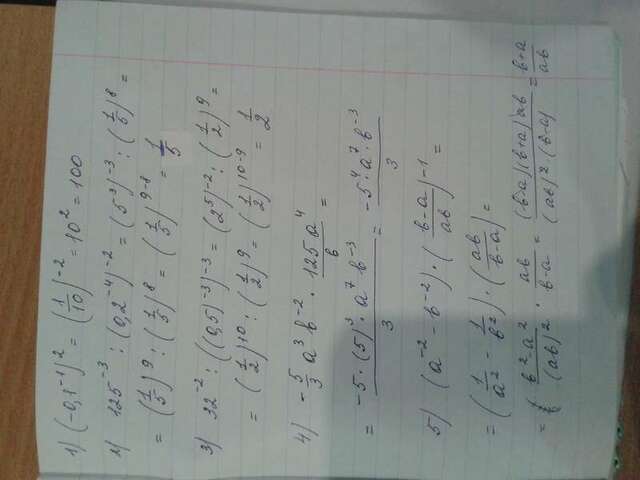 1) (-0,1⁻¹)² = (1/10)⁻² = 10² = 100
2) 125⁻³ : (0,2⁻⁴)⁻² = (5³)⁻³ : (1/5)⁸ =
= (1/5)⁹ : (1/5)⁸ = (1/5)⁹⁻⁸ = 1/5
3) 32⁻² : ((0,5)⁻³)⁻³ = (2⁵)⁻² : (1/2)⁹ =
= (1/2)¹⁰ : (1/2)⁹ = (1/2)¹⁰⁻⁹ = 1/2
4) -5/3 a³ b⁻² · 125a⁴/b =
= -5·(5)³·a⁷·b⁻³/3 = -5⁴·a⁷·b⁻³/3
5) (a⁻² - b⁻²) · (b-a/ab)⁻¹ =
= (1/a² - 1/b²) · (ab/b-a) =
= b² a²/(ab)² · ab/b-a = (b-a)(b+a)ab/(ab)²·(b-a) = b+a/ab